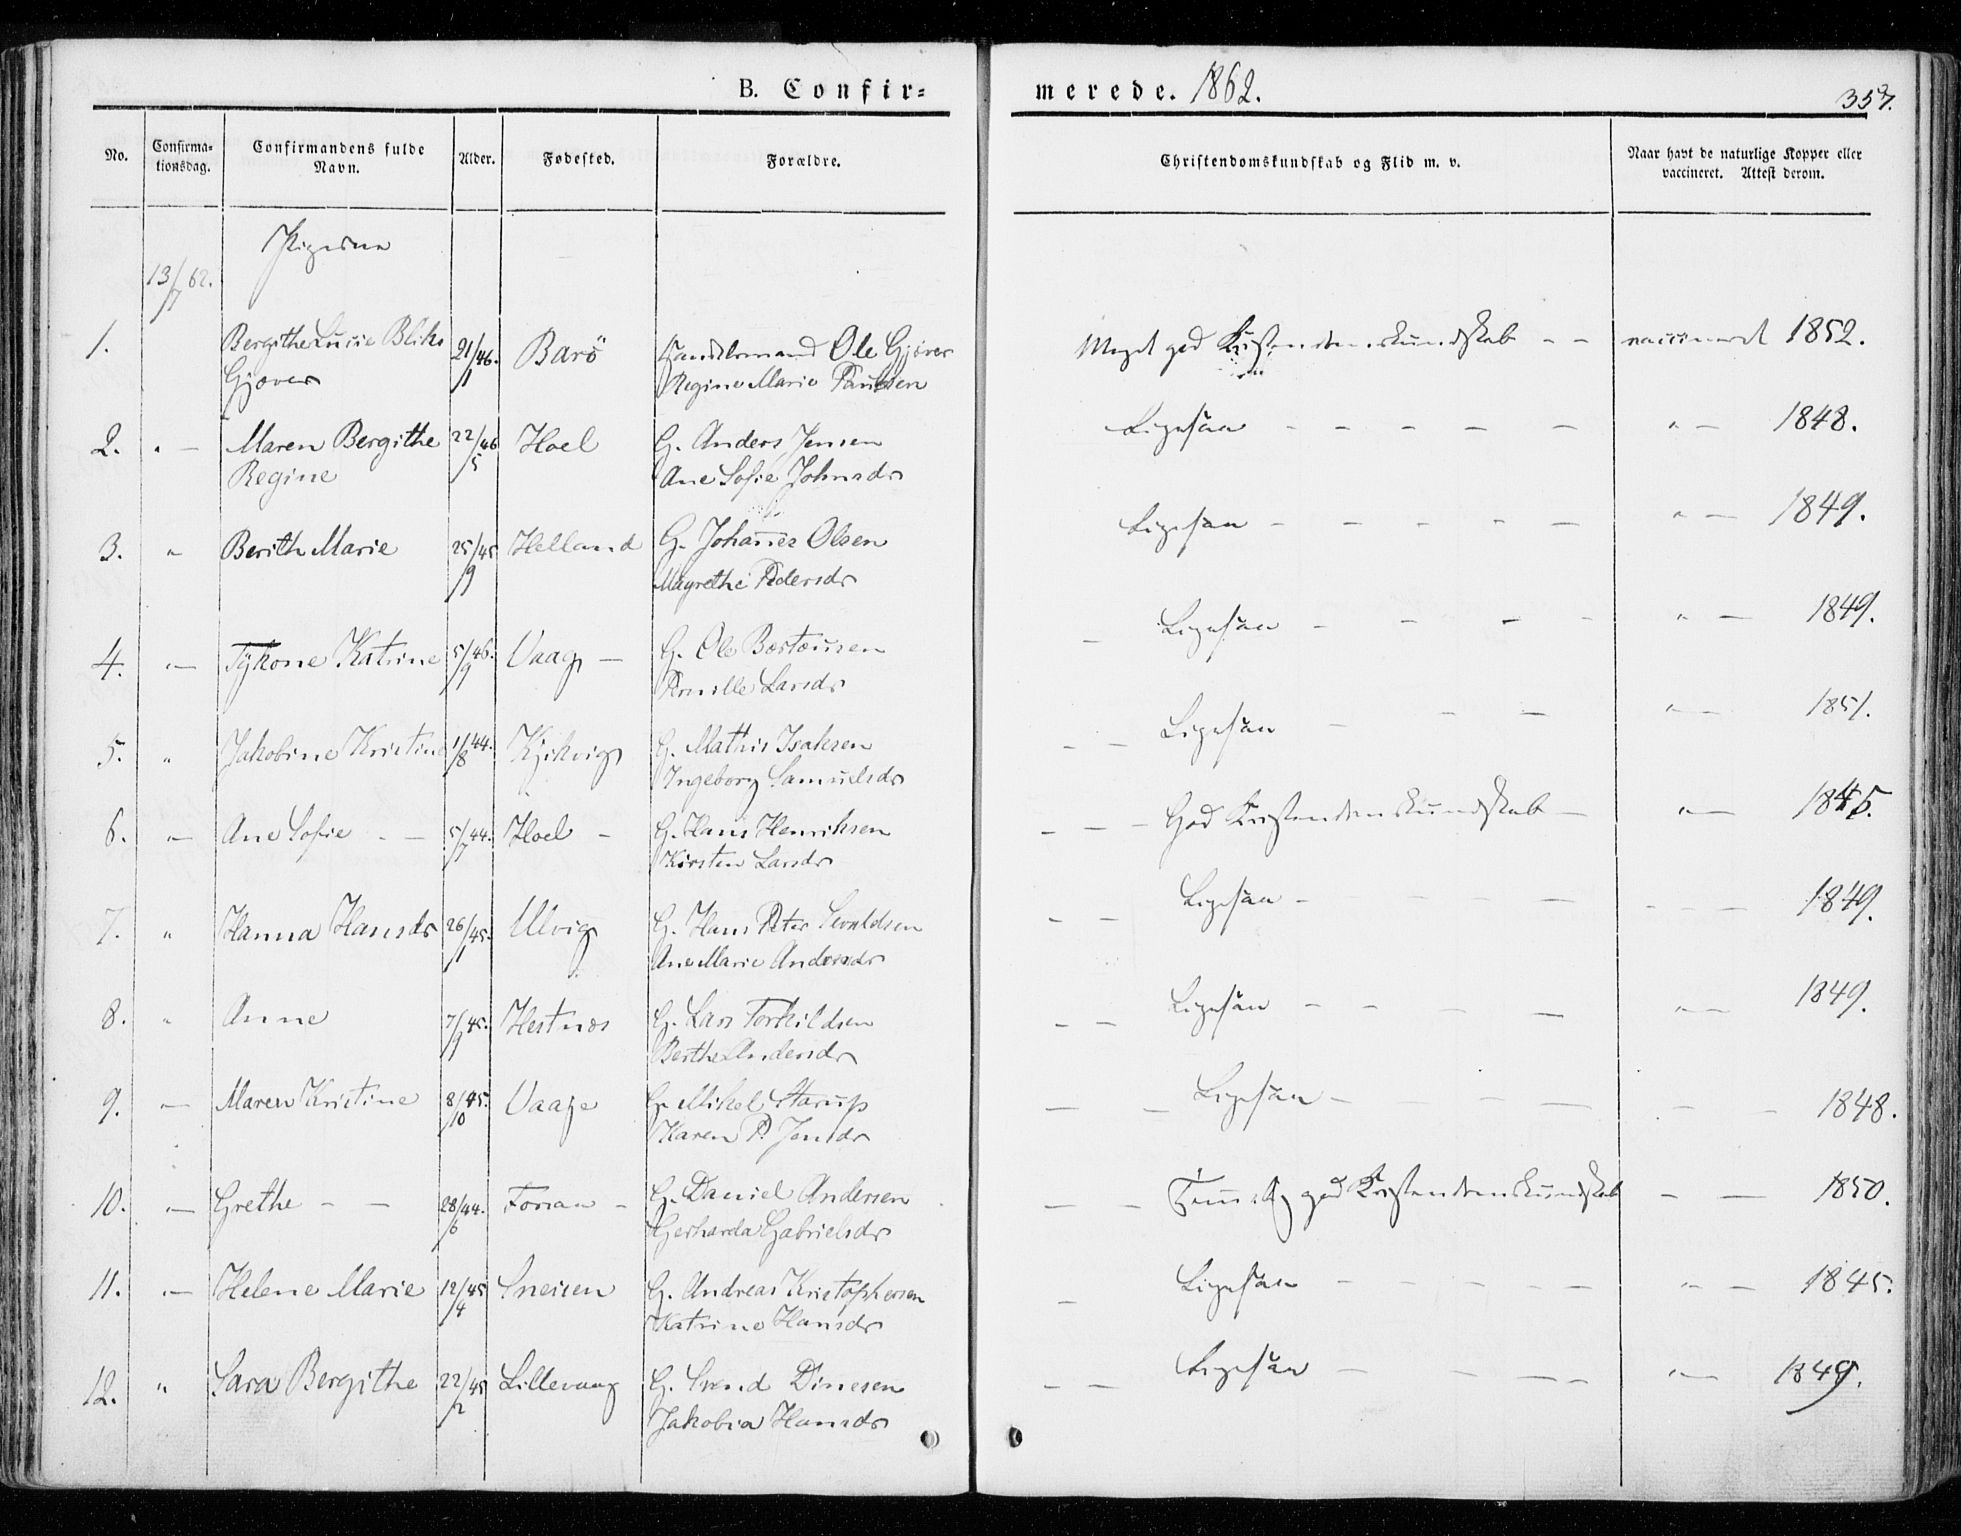 B. Confir=
merede. 1862.
357.
No.
Confirma=
tionsdag.
Confirmandens fulde
Navn.
Alder.
Fødested.
Forældre.
Christendomskundskab og Flid m. v.
Naar havt de naturlige Kopper eller
vaccineret. Attest derom.
Pigerne
13/7 62.
1. Bergithe Lucie Bliks 21/1 46. Barö Handelsmand Ole Gjöver Meget god Kristendomskundskab - - vaccineret 1852.
Gjöver Regine Marie Paulsen
2. " - Maren Bergithe 22/5 46 Hoel G. Anders Jensen Ligesaa - - - - - " - 1848.
Regine Ane Sofie Johnsdr
3. " Berith Marie 25/9 45 Helland G. Johannes Olsen Ligesaa - - - - - " - 1849.
Magrethe Pedersdr
4. " - Tykone Katrine 5/9 46. Vaag - G. Ole Bostensen - Ligesaa - - - - " - 1849.
Pernille Larsdr
5. " Jakobine Kristine 1/8 44. Kjikvig G. Mathis Isaksen - - Ligesaa - - - " - 1851.
Ingeborg Samuelsdr
6. " - Ane Sofie - - 5/7 44. Hoel - G. Hans Henriksen - - - God Kristendomskundskab - " - 1845.
Kirsten Larsdr
7. " Hanna Hansdr 26/1 45. Ulvig G. Hans Peter Sivaldsen - - Ligesaa - - - - - - - 1849.
Ane Marie Andersdr
8. " Anne 7/9 45. Hestnes G. Lars Torkildsen - - Ligesaa - - - - " - 1849.
Berthe Andersdr
9. - Maren Kristine 8/10 45. Vaage G. Mikel Starup - - Ligesaa - - - - - - 1848.
Karen P. Jensdr
10. " - Grethe - - 28/6 44. Forsan - G. Daniel Andersen - - Temmelig god Kristendomskundskab - - 1850.
Gerharda Gabrielsdr
11. " - Helene Marie 12/4 45 Sneisen G. Andreas Kristophersen - Ligesaa - - - - - " - 1845.
Katrine Hansdr
12. " Sara Bergithe 22/2 45 Lillevaag G. Svend Dinesen - - Ligesaa - - - - " - 1849.
Jakobia Hansdr